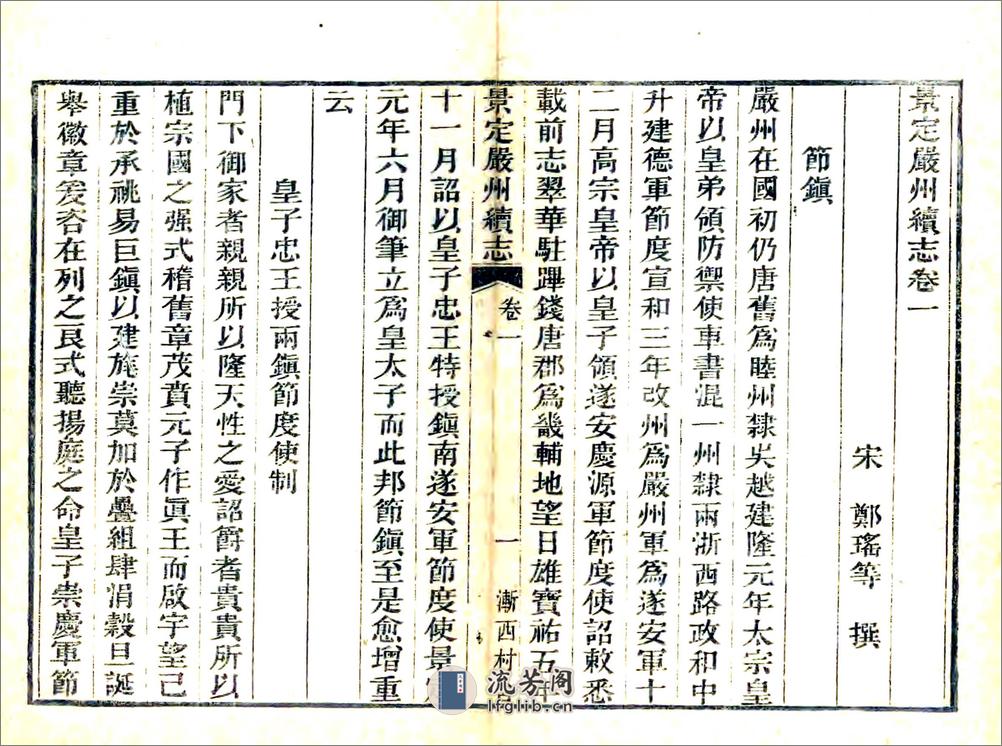 景定嚴州續志卷一
宋 鄭瑤等 撰
節鎭
嚴州在國初仍唐舊爲睦州隸吳越建隆元年太宗皇
帝以皇弟領防禦使車書混一州隸兩浙西路政和中
升建德軍節度宣和三年改州爲嚴州軍爲遂安軍十
二月高宗皇帝以皇子領遂安慶源軍節度使詔敕悉
載前志翠華駐蹕錢唐郡爲畿輔地望日雄寶祐五年
景定嚴州續志 卷一 一 漸西村
十一月詔以皇子忠王特授鎭南遂安軍節度使景
元年六月御筆立爲皇太子而此邦節鎭至是愈增重
云
皇子忠王授兩鎭節度使制
門下御家者親親所以隆天性之愛詔爵者貴貴所以
植宗國之强式稽舊章茂賁元子作眞王而啟宇望已
重於承祧易巨鎭以建旄崇莫加於疊組肆涓穀旦誕
舉徽章爰咨在列之良式聽揚庭之命皇子崇慶軍節
流芳阁
lfglib.cn